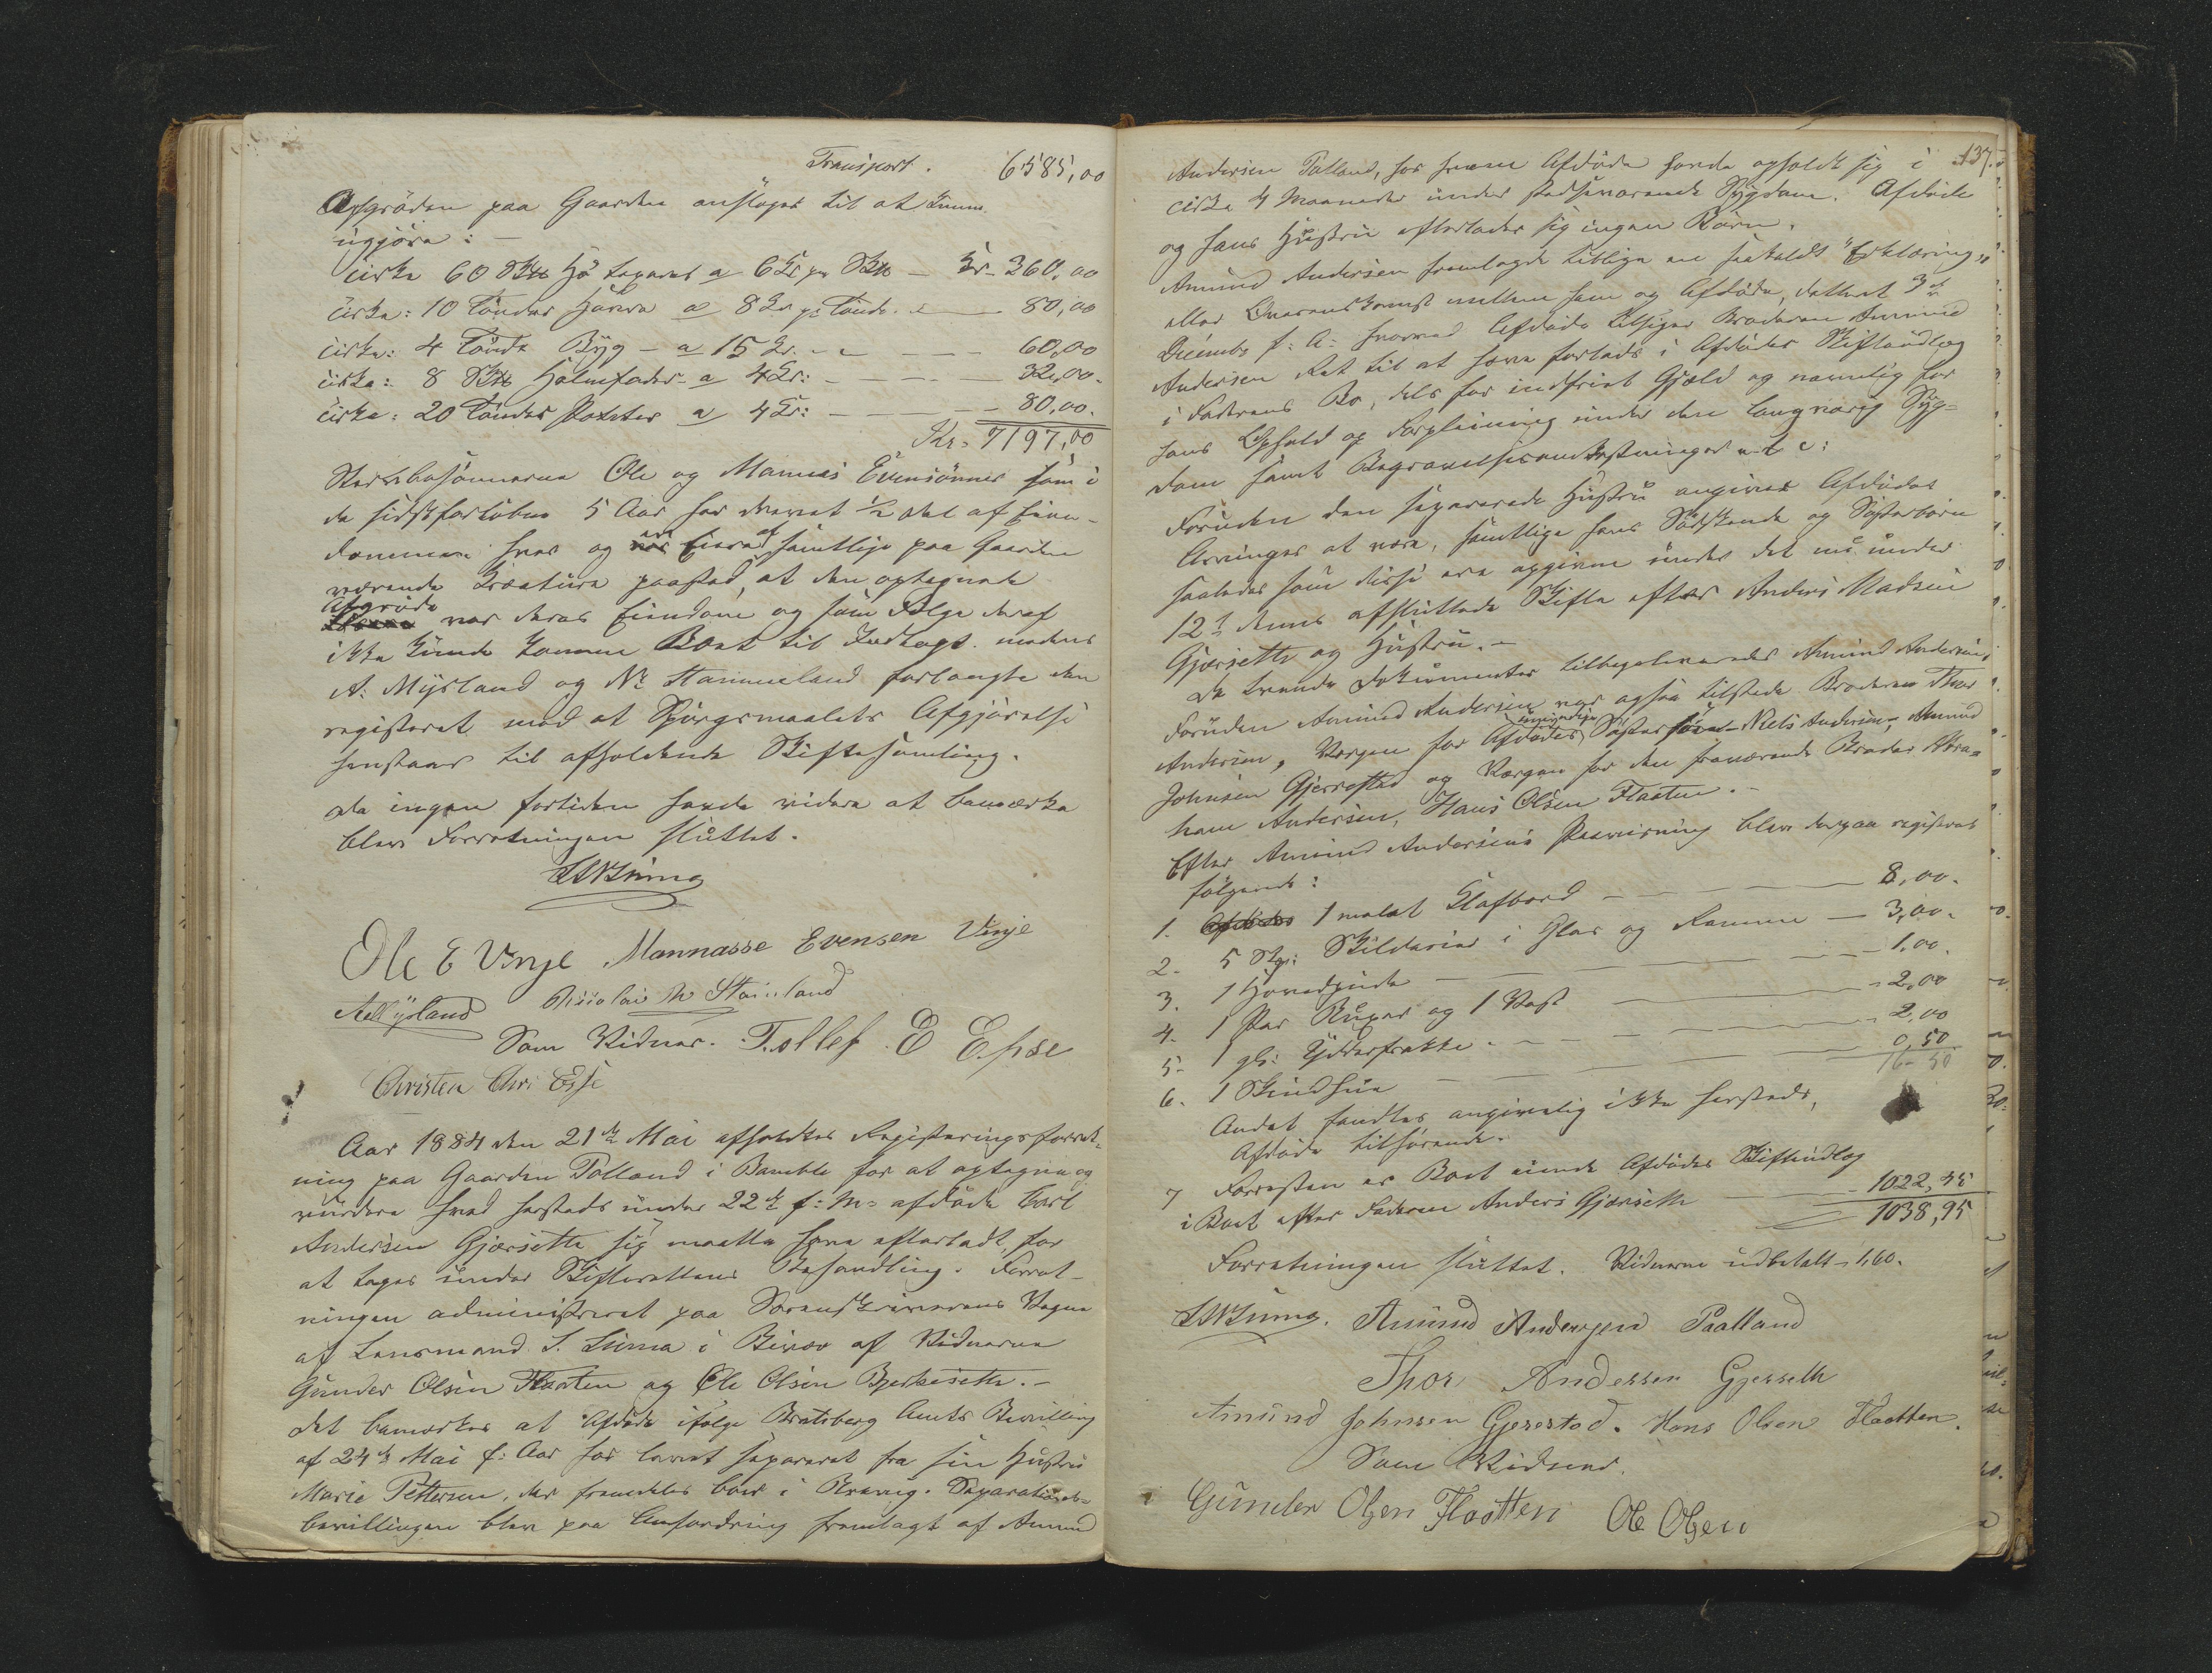 Transport. 6585,00
Afgröden paa Gaarden ansloges til at kunne
udgjöre: –
cirka 60 Sk℔ Hö taxeret a 6 Kr pr Sk℔ – Kr. 360,00
cirka: 10 Tönder Havre a 8 Kr pr Tönde – 80,00
cirka: 4 Tönde Byg – a 15 Kr. – – 60,00
cirka: 8 Sk℔ Halmfoder a 4 Kr: – – 32,00.
cirka: 20 Tönder Poteter a 4 Kr: – – 80,00.
Kr. 7197,00
Stervbosönnerne Ole og Mannas Evensönner som i
de sidstforløbne 5 Aar har drevet 1/2 Del af Eien-
dommen hver og er Eiere af samtlige paa Gaarden
værende Kreature paastod, at den optegnede
Afgröde var deres Eiendom og som Fölge deraf
ikke kunde komme Boet til Indtægt. medens
A. Myrland og Ns Stammeland forlangte den
registeret mod at Spörgsmaalets Afgjörelse
henstaar til afholdende Skiftesamling.
Da ingen fortiden havde videre at bemærke
blev Forretningen sluttet.
Ole E Vinje Mannasse Evensen Vinje
AMyrland Nicolai N Stainland
Som Vidner. Tollef E Espe
Christen Chri Espe
Aar 1884 den 21de Mai afholdtes Registeringsforret-
ning paa Gaarden Palland i Bamble for at optegne og
vurdere hvad herstads under 22de f: M: afdöde Carl
Andersen Gjærsette sig maatte have efterladt, for
at tages under Skifterettens Behandling. Forret-
ningen administreret paa Sorenskriverens Vegne
af Lensmand S. Lima i Bivær af Vidnerne
Gunder Olsen Flaaten og Ole Olsen Bjerkesette. –
Det bemærkes at Afdöde ifölge Bratsberg Amts Bevilling
af 24de Mai f: Aar har levet separeret fra sin Hustru
Marie Pettersen, der fremdeles boer i Brevig. Separations-
bevillingen blev paa Anfordring fremlagt af Amund
137.
Andersen Palland, hos hvem Afdöde havde opholdt sig i
cirka 4 Maaneder under stedsevarende Sygdom. Afdöde
og hans Hustru efterlader sig ingen Börn.
Amund Andersen fremlagde tillige en saakaldt "Erklæring"
eller Overenskomst mellem ham og Afdöde, dateret 3de
Decembr f: A: hvorved Afdöde tilsiger Broderen Amund
Andersen Ret til at have forlods i Afdödes Skifteudlæg
i Faderens Bo, dels for indfriet Gjæld og navnlig for
hans Ophold og Forpleining under den langvarig Syg-
dom samt Begravelsesomkostninger m. v.:
Foruden den separerede Hustru angives Afdödes
Arvinger at være, samtlige hans Södskende og Sösterbörn
saaledes som disse ere opgivne under det nu under
12te dennes afsluttede Skifte efter Anders Madsen
Gjærsette og Hustru. –
De tvende Dokumenter tilbageleveredes Amund Andersen,
Foruden Amund Andersen var ogsaa tilstede Broderen Thor
Andersen, Vergen for Afdödes umyndige Sösters sön Niels Andersen, Amund
Johnsen Gjerrestad og Vergen for den fraværende Broder Abra-
ham Andersen, Hans Olsen Flaaten. –
Efter Amund Andersens Paavisning blev derpaa registeret
fölgende:
1. 1 malet Klafbord – 8,00.
2. 5 Stkr: Skilderier i Glas og Ramme – 3,00.
3. 1 Hovedpude – 1,00.
4. 1 Par Buxer og 1 Vest – 2,00
5. 1 gl: Yderfrakke – 2,00
6. 1 Skindhue – 0,50
16 – 50
Andet fandtes angivelig ikke herstads,
Afdöde tilhörende.
7 Forresten er Boet eiende Afdödes Skifteudlæg
i Boet efter Faderen Anders Gjærsette – 1022,45
1038,95
Forretningen sluttet. Vidnerne udbetalt – 1,60.
Amund Andersen Paalland
Thor Andersen Gjerseth
Amund Johnsen Gjerestad. Hans Olsen Flaatten.
Som Vidner.
Gunder Olsen Flaatten Ole Olsen